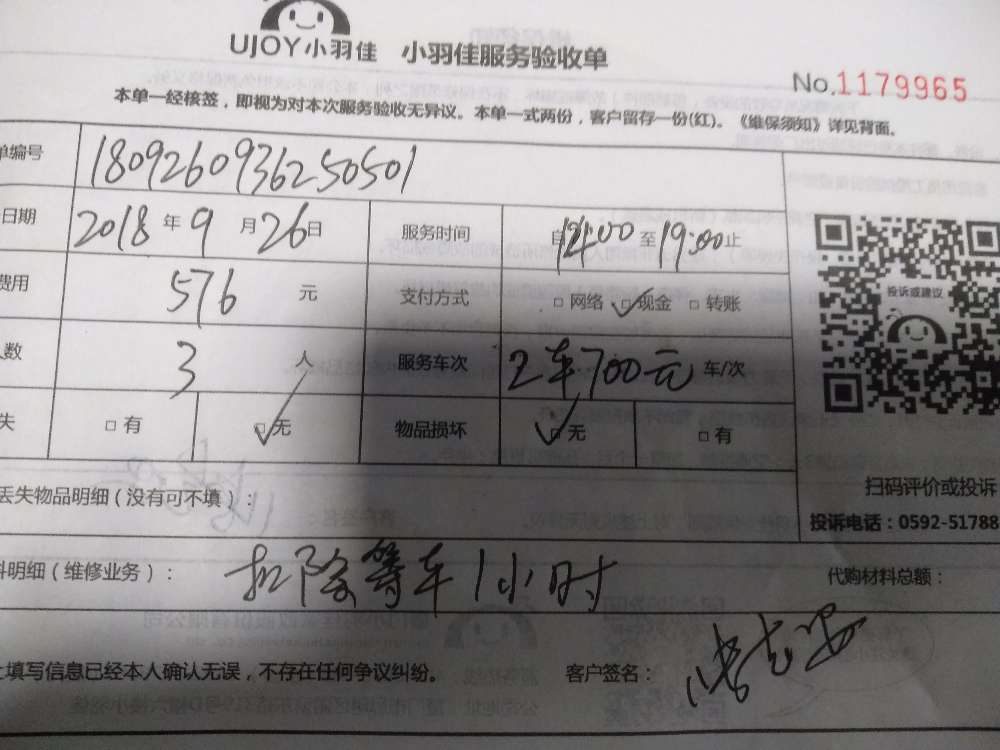 UJOY小羽佳 小羽佳服务验收单
No.1179965
本单一经核签，即视为对本次服务验收无异议。本单一式两份，客户留存一份(红)。《维保须知》详见背面。
单编号 1809260936250501
日期 2018 年 9 月 26 日 服务时间 自 14:00 至 19:00 止
费用 576 元 支付方式 □网络 ☑现金 □转账
人数 3 人 服务车次 2车700元 车/次
失 □有 ☑无 物品损坏 ☑无 □有
投诉或建议
扫码评价或投诉
投诉电话：0592-51788
丢失物品明细（没有可不填）：
料明细（维修业务）： 扣除等车1小时 代购材料总额：
上填写信息已经本人确认无误，不存在任何争议纠纷。 客户签名：